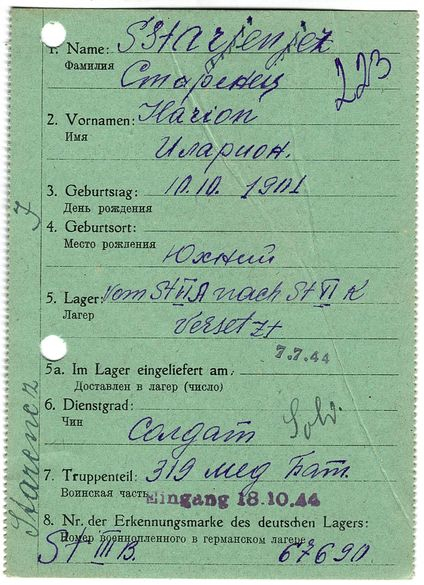 223
1. Name: SStarjenjez
Фамилия Старенец
2. Vornamen: Ilarion
Имя Иларион.
3. Geburtstag: 10.10. 1901
День рождения
4. Geburtsort:
Место рождения Юхний
5. Lager: vom St VI A nach St VI K
Лагер versetzt
7.7.44
5a. Im Lager eingeliefert am:
Доставлен в лагер (число)
6. Dienstgrad: Sold.
Чин Солдат
7. Truppenteil: 319 мед Бат.
Воинская часть Eingang 18.10.44
8. Nr. der Erkennungsmarke des deutschen Lagers:
Номер военнопленного в германском лагере
St III B. 67690
Starencz